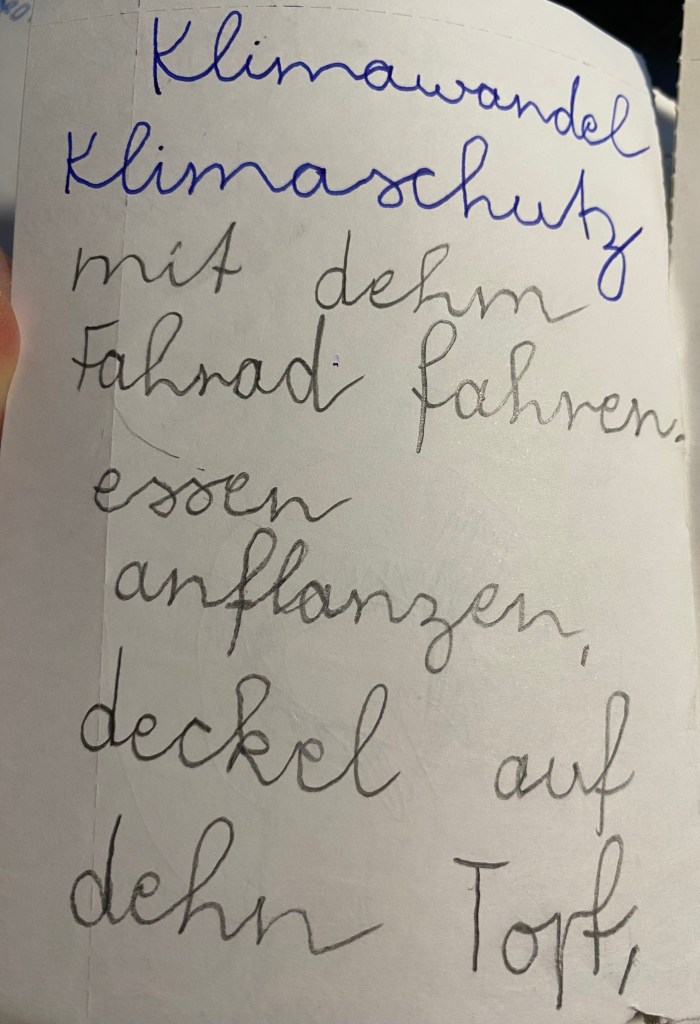 Klimawandel
Klimaschutz
mit dehm
Fahrad fahren.
essen
anflanzen,
deckel auf
dehn Topf,